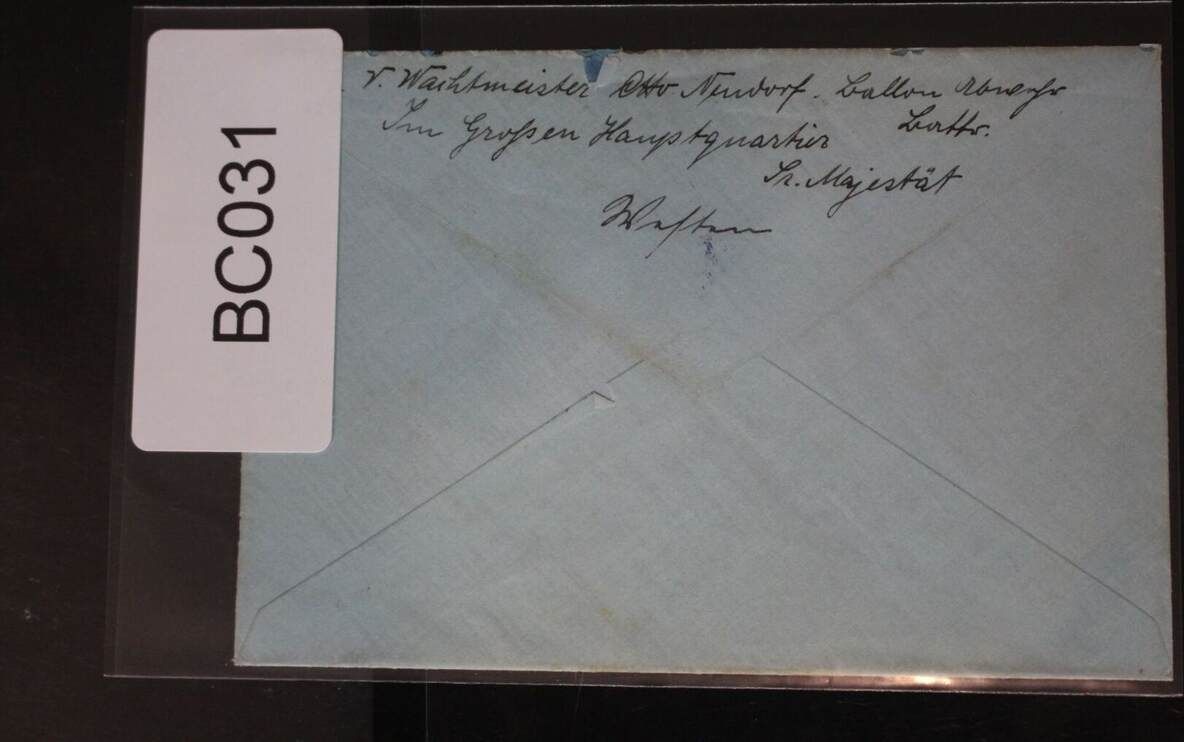 BC031
V. Wachtmeister Otto Neudorf. Ballon Abwehr
Im Großen Hauptquartier Battr.
Sr. Majestät
Westen